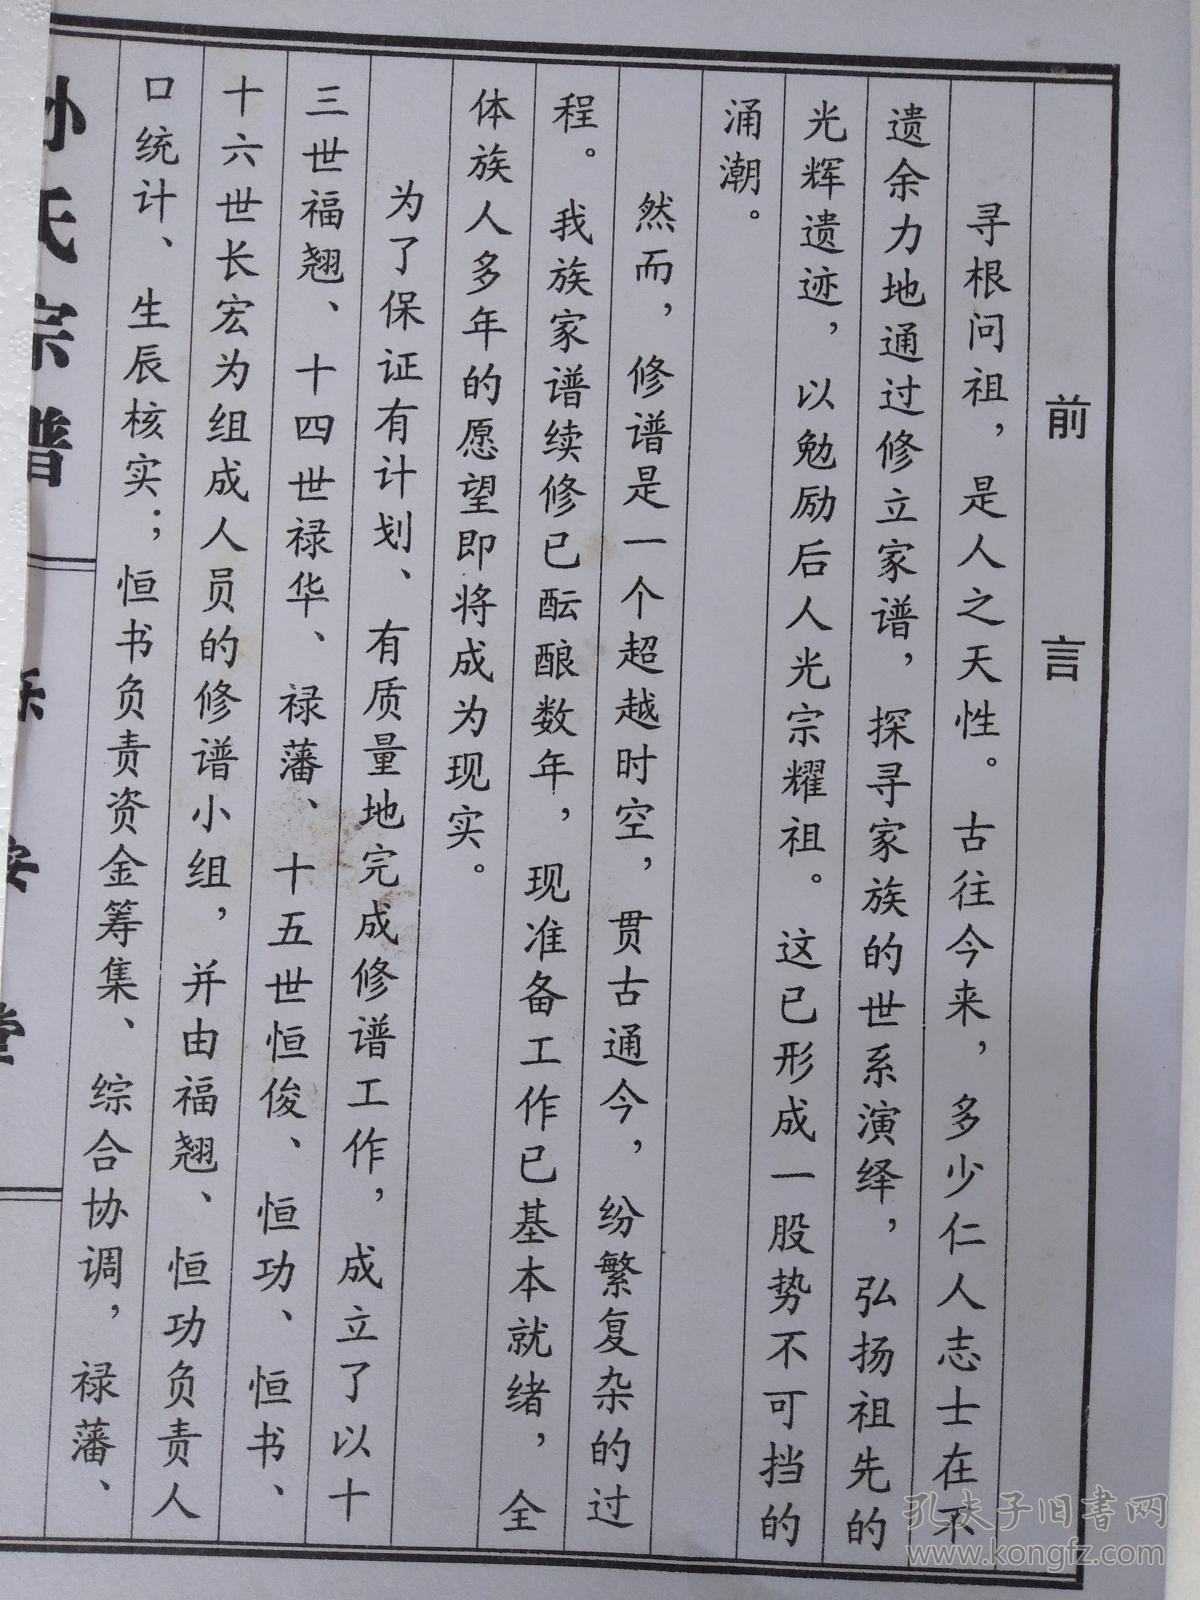 前言
寻根问祖，是人之天性。古往今来，多少仁人志士在不
遗余力地通过修立家谱，探寻家族的世系演绎，弘扬祖先的
光辉遗迹，以勉励后人光宗耀祖。这已形成一股势不可挡的
涌潮。
然而，修谱是一个超越时空，贯古通今，纷繁复杂的过
程。我族家谱续修已酝酿数年，现准备工作已基本就绪，全
体族人多年的愿望即将成为现实。
为了保证有计划、有质量地完成修谱工作，成立了以十
三世福翘、十四世禄华、禄藩、十五世恒俊、恒功、恒书、
十六世长宏为组成人员的修谱小组，并由福翘、恒功负责人
口统计、生辰核实；恒书负责资金筹集、综合协调，禄藩、
孙氏宗谱
乐安堂
孔夫子旧书网
www.kongfz.com